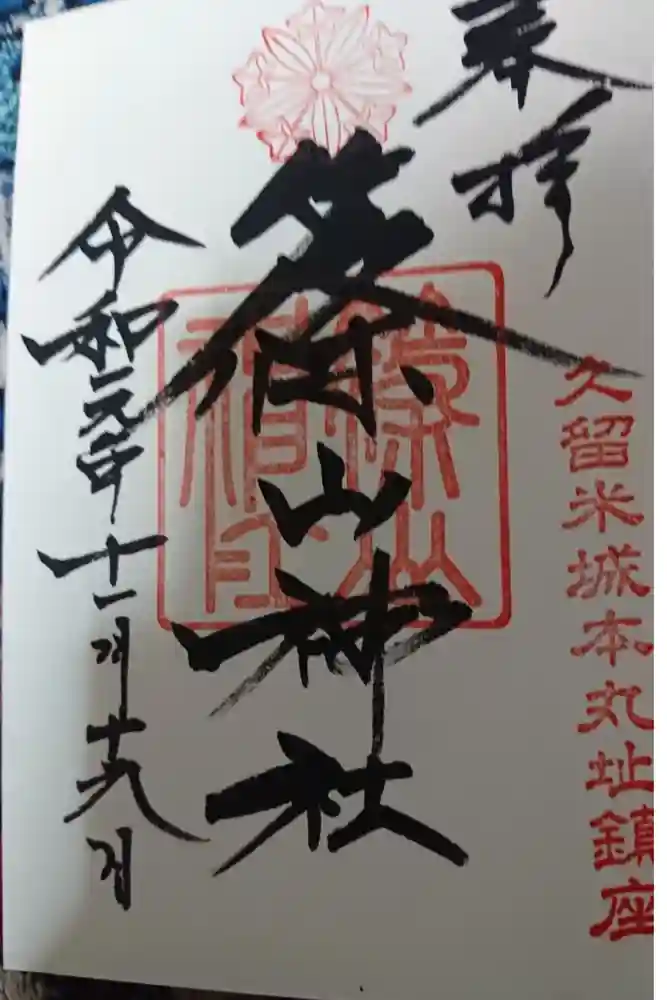 奉拝
久留米城本丸址鎮座
篠山神社
令和元年十一月十九日